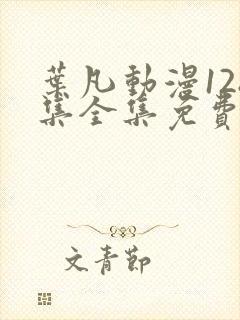 葉凡動漫12
集全集免費
文青節